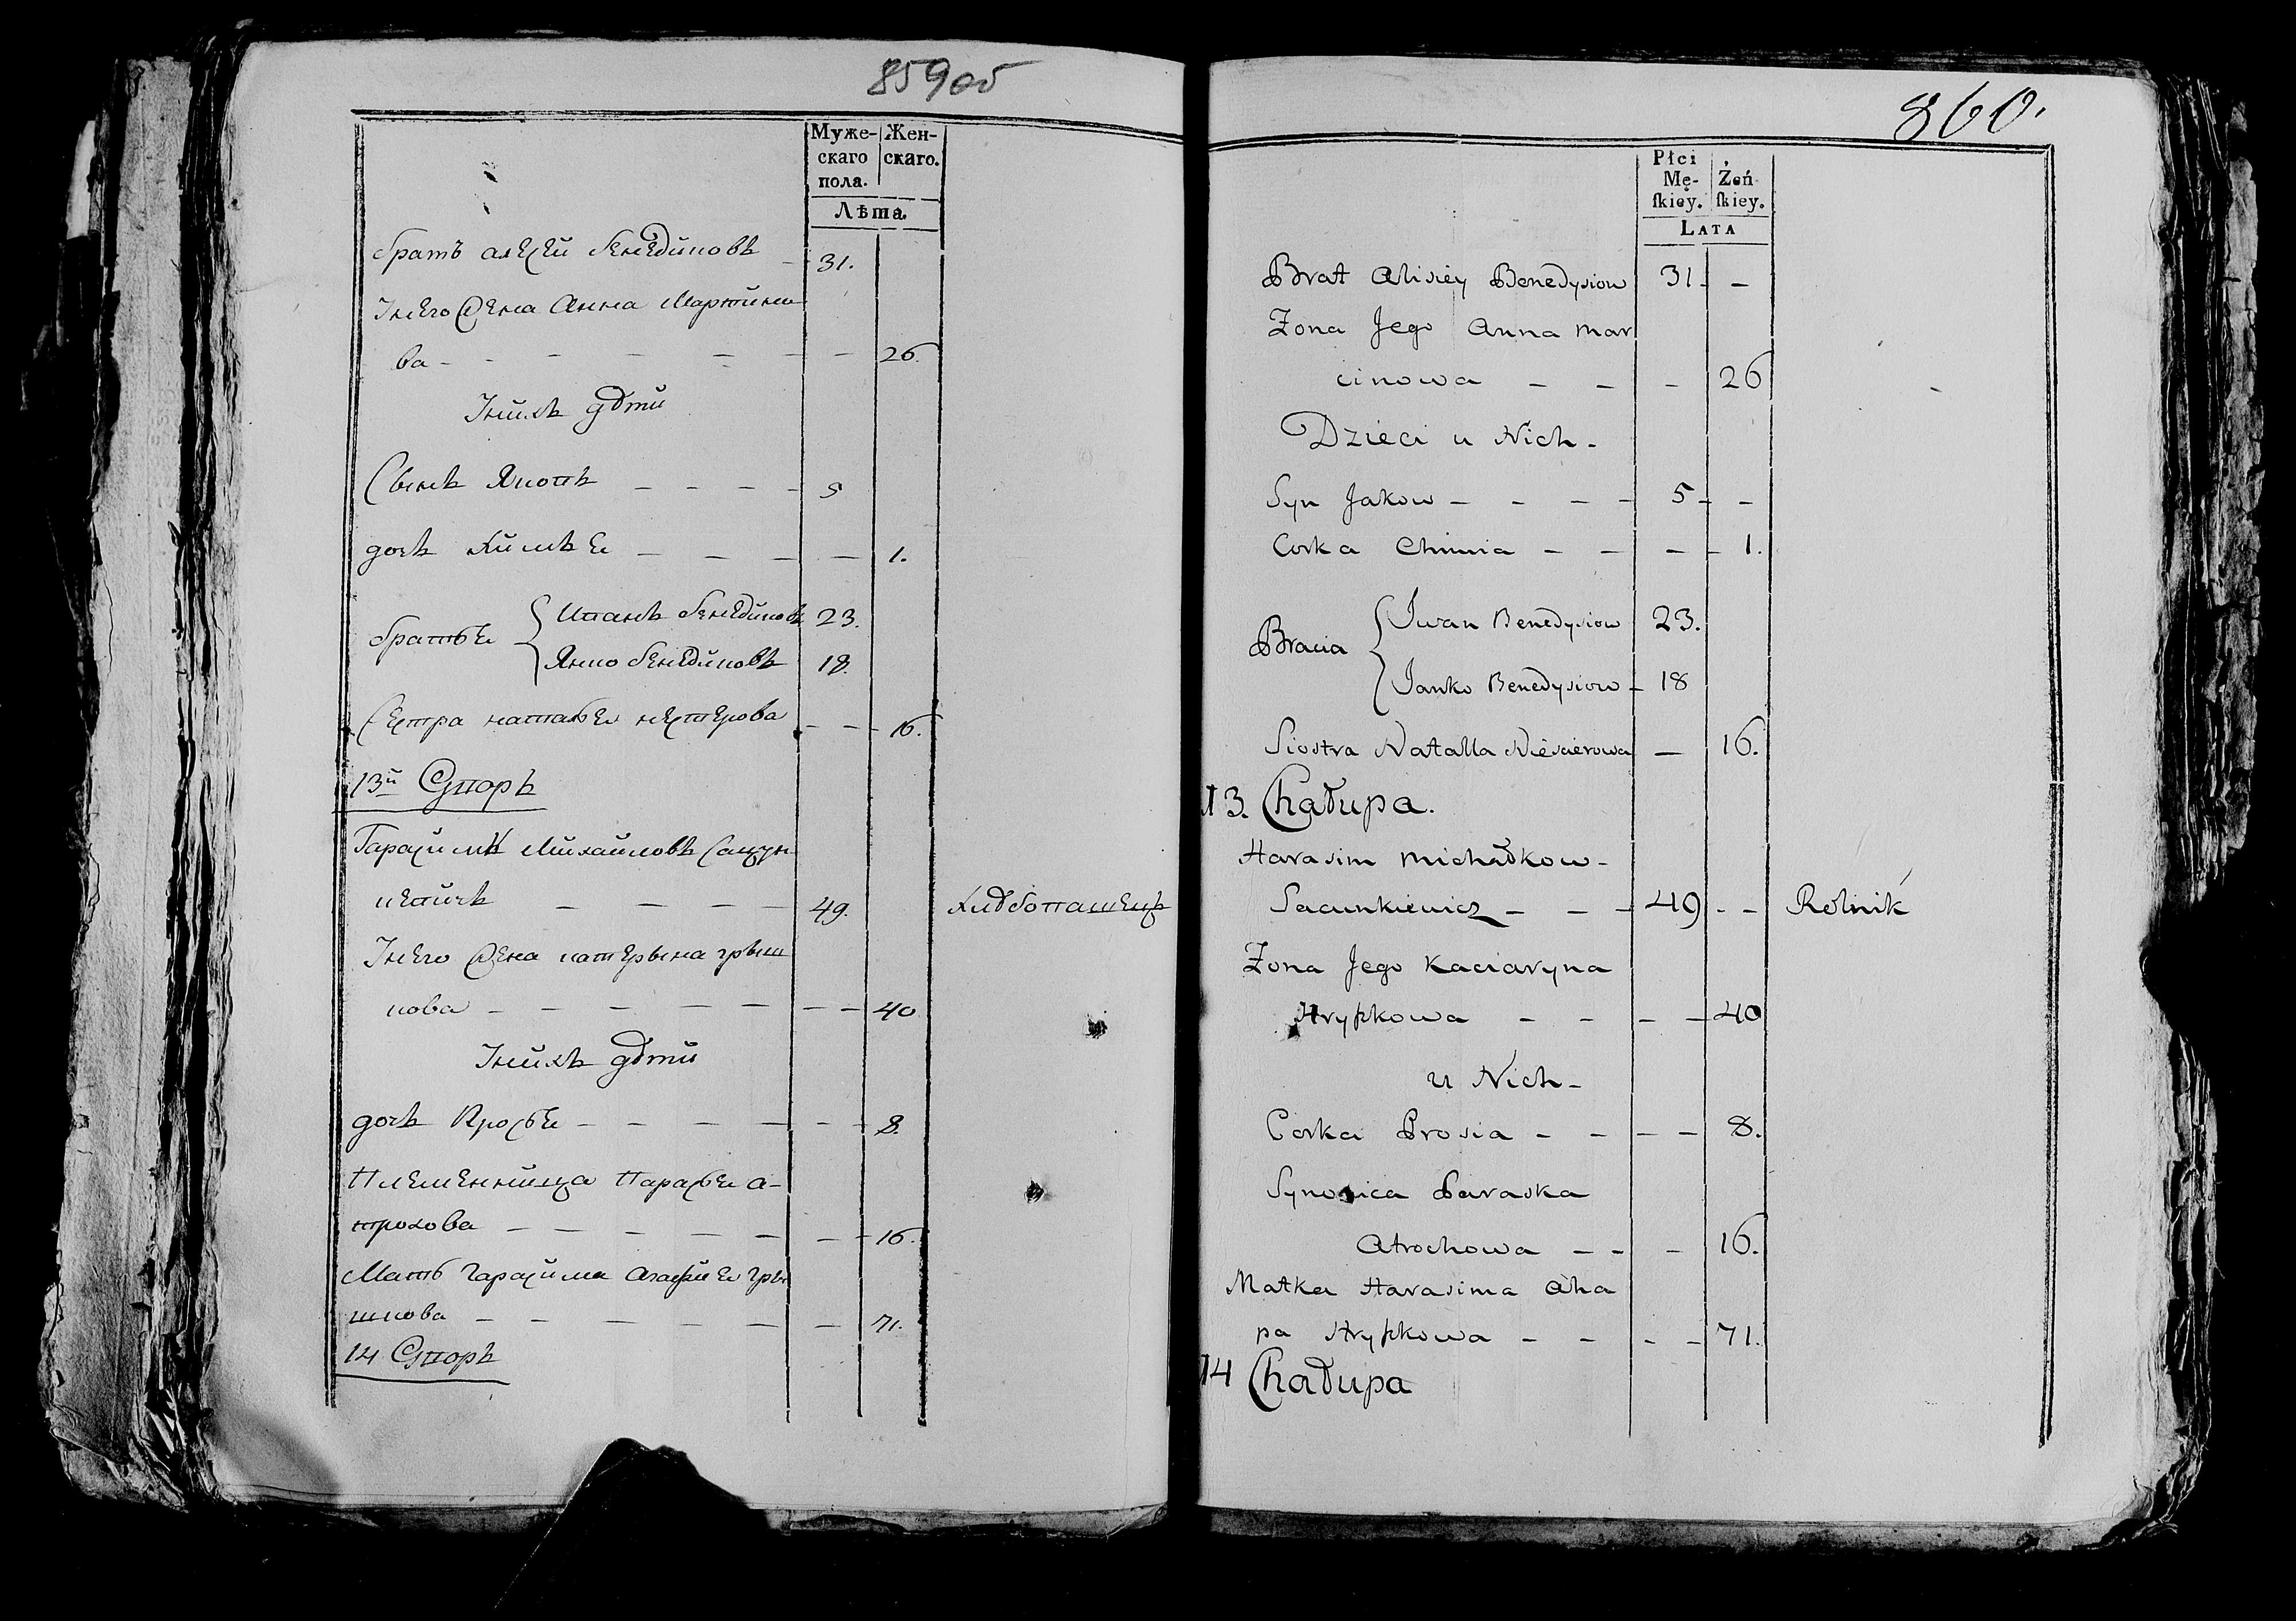 859об
Муже-
скаго
пола.
Жен-
скаго.
Лѣта.
братъ алеѯей бенедиковъ 31.
Унего жена Анна Мартино
ва - - - - - - - 26.
Унихъ дѣти
Сынъ Якопъ - - - - 5
дочь Химъя - - - - 1.
братья { Иванъ бенедиковъ 23.
Янко бенедиковъ 18.
Сестра наталья нестерова - - - 16.
13й Дворъ
Гарасимъ Михайловъ Сацун
кевичъ - - - - 49. хлѣбопашецъ
Унего жена катерына грыш
кова - - - - - - - 40
Унихъ дѣти
дочь Просья - - - - - - 8.
Племенница Парасья а-
трохова - - - - - - - 16.
Мать гарасима агафия гры
шкова - - - - - - - 71.
14 Дворъ
860.
Płci
Mę-
ſkiey.
Żeń-
ſkiey.
LATA
Brat Alisiey Benedysiow 31 - -
Zona Jego Anna Mar
cinowa - - - 26
Dzieci u Nich -
Syn Jakow - - - - 5 - -
Corka Chimia - - - - 1.
Bracia { Jwan Benedysiow 23.
Janko Benedysiow - 18
Siostra Natalla Niescierowa - 16.
13. Chałupa.
Harasim Michałkow -
Sacunkiewicz - - - 49 - - Rolnik
Zona Jego Kaciaryna
Hryſzkowa - - - - 40
u Nich -
Corka Prosia - - - - 8.
Synowica Paraska
Atrochowa - - - 16.
Matka Harasima Aha
pa Hryſzkowa - - - - 71.
14 Chałupa